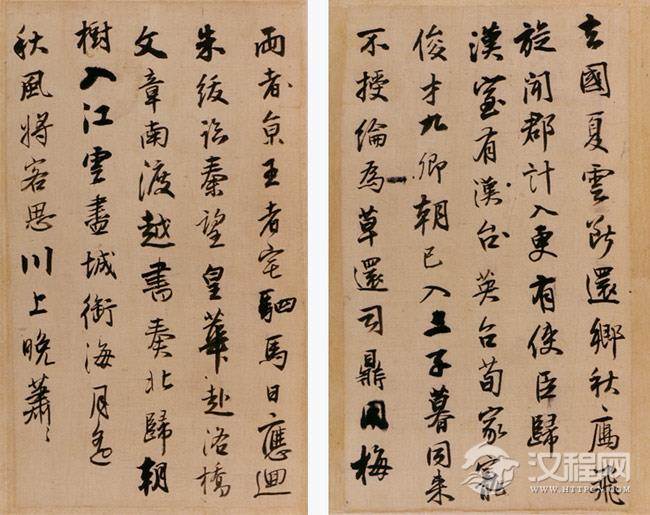 去國夏雲斷還鄉秋鴈飛
旋聞郡計入更有使臣歸
漢室有漢台英台荀家寵
俊才九卿朝已入三子暮同來
不授綸為草還司鼎用梅
兩者京王者宅駟馬日應迴
朱紱臨秦望皇華赴洛橋
文章南渡越書奏北歸朝
樹入江雲盡城銜海月遙
秋風將客思川上晚蕭〻
汉程网
WWW.HTTPCN.COM